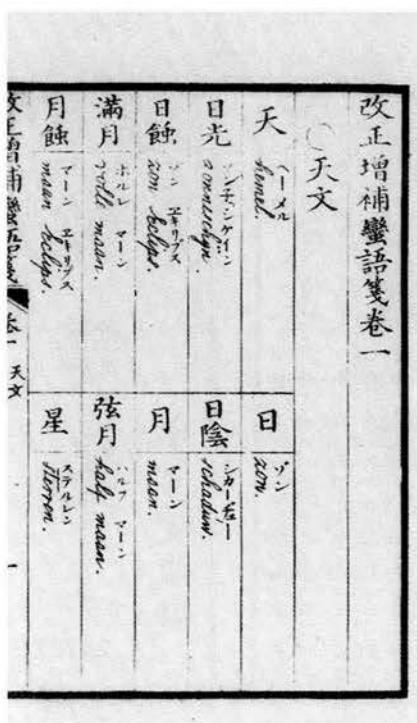 改正增補蠻語箋卷一
天文
天
ヘーメル
hemel.
日
ゾン
zon.
日光
ゾンネシケイン
zonneschyn.
日陰
シカーデュー
schaduw.
日蝕
ゾン ヱキリプス
zon Eclips.
月
マーン
maan.
滿月
ホルレ マーン
volle maan.
弦月
ハルフ マーン
half maan.
月蝕
マーン ヱキリプス
maan Eclips.
星
ステルレン
sterren.
改正增補蠻語箋 卷一 天文 一